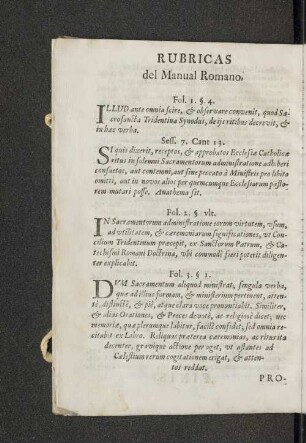 RUBRICAS
del Manual Romano,
Fol. 1. §. 4.
ILLUD ante omnia scire, & observare convenit, quod Sa-
crosancta Tridentina Synodus, de ijs ritibus decrevit, &
in hæc verba.
Sess. 7. Can: 13.
SI quis dixerit, receptos, & approbatos Ecclesiæ Catholicæ
ritus in solemni Sacramentorum administratione adhiberi
consuetos, aut contemni, aut sine peccato à Ministris pro libito
omitti, aut in novos alios per quemcumque Ecclesiarum pasto-
rem mutari posse. Anathema sit.
Fol. 2. §. vlt.
IN Sacramentorum administratione eorum virtutem, vsum,
ad vtilitatem, & cæremoniarum significationes, vt Con-
cilium Tridentinum præcepit, ex Sanctorum Patrum, & Ca-
techismi Romani Doctrina, vbi commodè fieri poterit diligen-
ter explicabit.
Fol. 3. §. 1.
DVm Sacramentum aliquod ministrat, singula verba,
quæ ad illius formam, & ministerium pertinent, atten-
tè, distinctè, & piè, atque clara voce pronuntiabit. Similiter,
& alias Orationes, & Preces devotè, ac religiosè dicet; nec
memoriæ, quæ plerumque labitur, facilè confidet, sed omnia re-
citabit ex Libro. Reliquas præterea cæremonias, ac ritus ita
decenter, gravique actione peraget, vt astantes ad
Cælestium rerum cogitationem erigat, & atten-
tos reddat.
PRO-